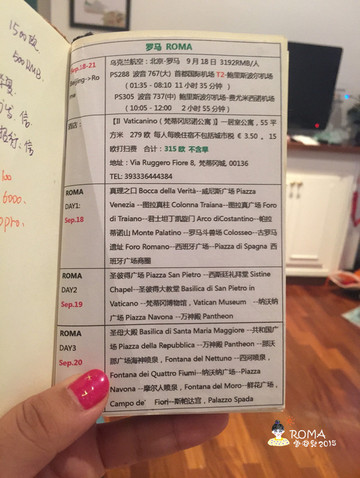 罗马 ROMA
Sep.18-21
Beijing->Ro
me
乌克兰航空：北京-罗马 9月18日 3192RMB/人
PS288 波音 767(大) 首都国际机场 T2-鲍里斯波尔机场
（01:35 - 08:10 11 小时 35 分钟）
PS305 波音 737(中) 鲍里斯波尔机场-费尤米西诺机场
（10:05 - 12:00 2 小时 55 分钟）
酒店：
【Il Vaticanino (梵蒂冈尼诺公寓)】一居室公寓，55 平
方米 279 欧 每人每晚住宿不包括城市税 € 3.50 。15
欧打扫费 合计：315 欧 不含早
地址：Via Ruggero Fiore 8, 梵蒂冈城, 00136
TEL: 393336444384
ROMA
DAY1:
Sep.18
真理之口 Bocca della Verità--威尼斯广场 Piazza
Venezia --图拉真柱 Colonna Traiana--图拉真广场 Foro
di Traiano--君士坦丁凯旋门 Arco diCostantino--帕拉
蒂诺山 Monte Palatino --罗马斗兽场 Colosseo--古罗马
遗址 Foro Romano--西班牙广场--Piazza di Spagna 西
班牙广场商圈
ROMA
DAY2
Sep.19
圣彼得广场 Piazza San Pietro --西斯廷礼拜堂 Sistine
Chapel--圣彼得大教堂 Basilica di San Pietro in
Vaticano --梵蒂冈博物馆，Vatican Museum --纳沃纳
广场 Piazza Navona --万神殿 Pantheon
ROMA
DAY3
Sep.20
圣母大殿 Basilica di Santa Maria Maggiore --共和国广
场 Piazza della Repubblica --万神殿 Pantheon --那沃
那广场海神喷泉，Fontana del Nettuno --四河喷泉，
Fontana dei Quattro Fiumi--纳沃纳广场--Piazza
Navona --摩尔人喷泉，Fontana del Moro--鲜花广场，
Campo de' Fiori--斯帕达宫，Palazzo Spada
1500
500RMB.
6000.
ROMA
2015